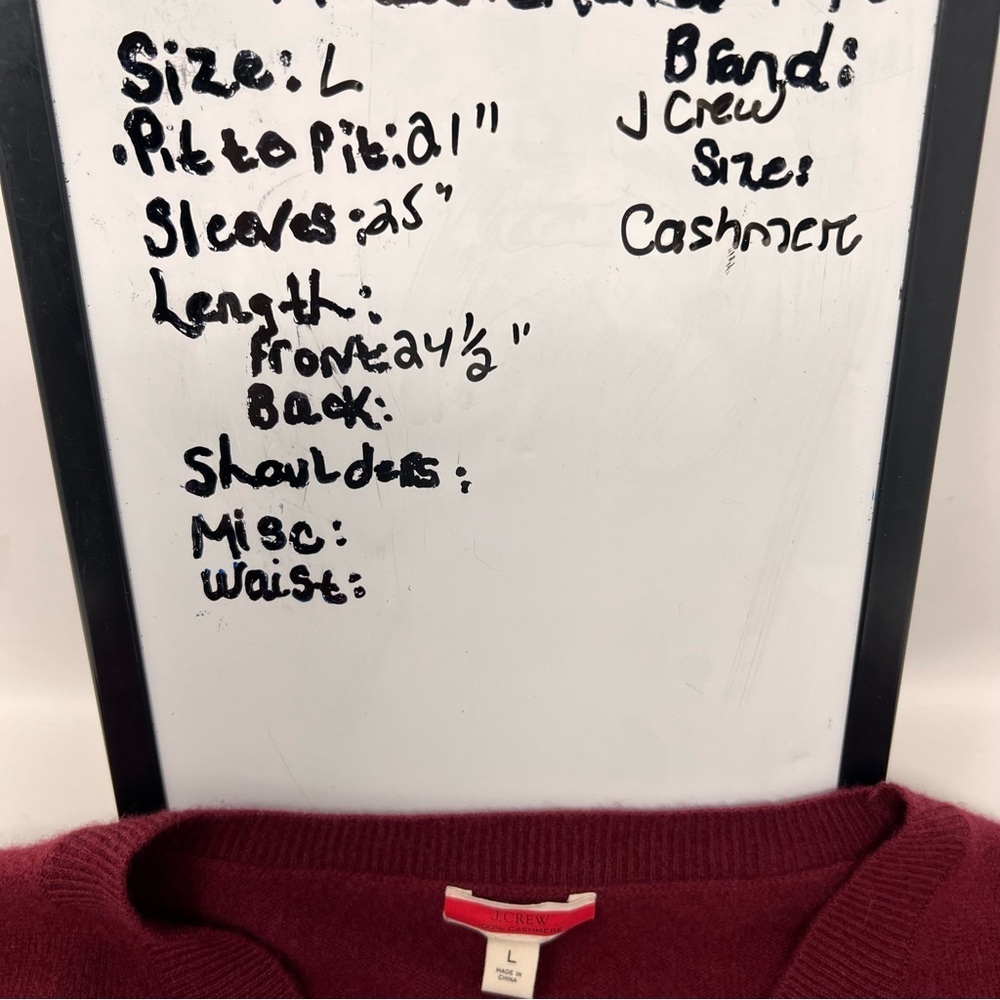 Size: L
Pit to Pit: 21"
Sleaves: 25"
Length:
Front 24 1/2"
Back:
Shoulders:
Misc:
Waist:
Brand:
J Crew
Size:
Cashmere
J.CREW
100% CASHMERE
L
MADE IN
CHINA